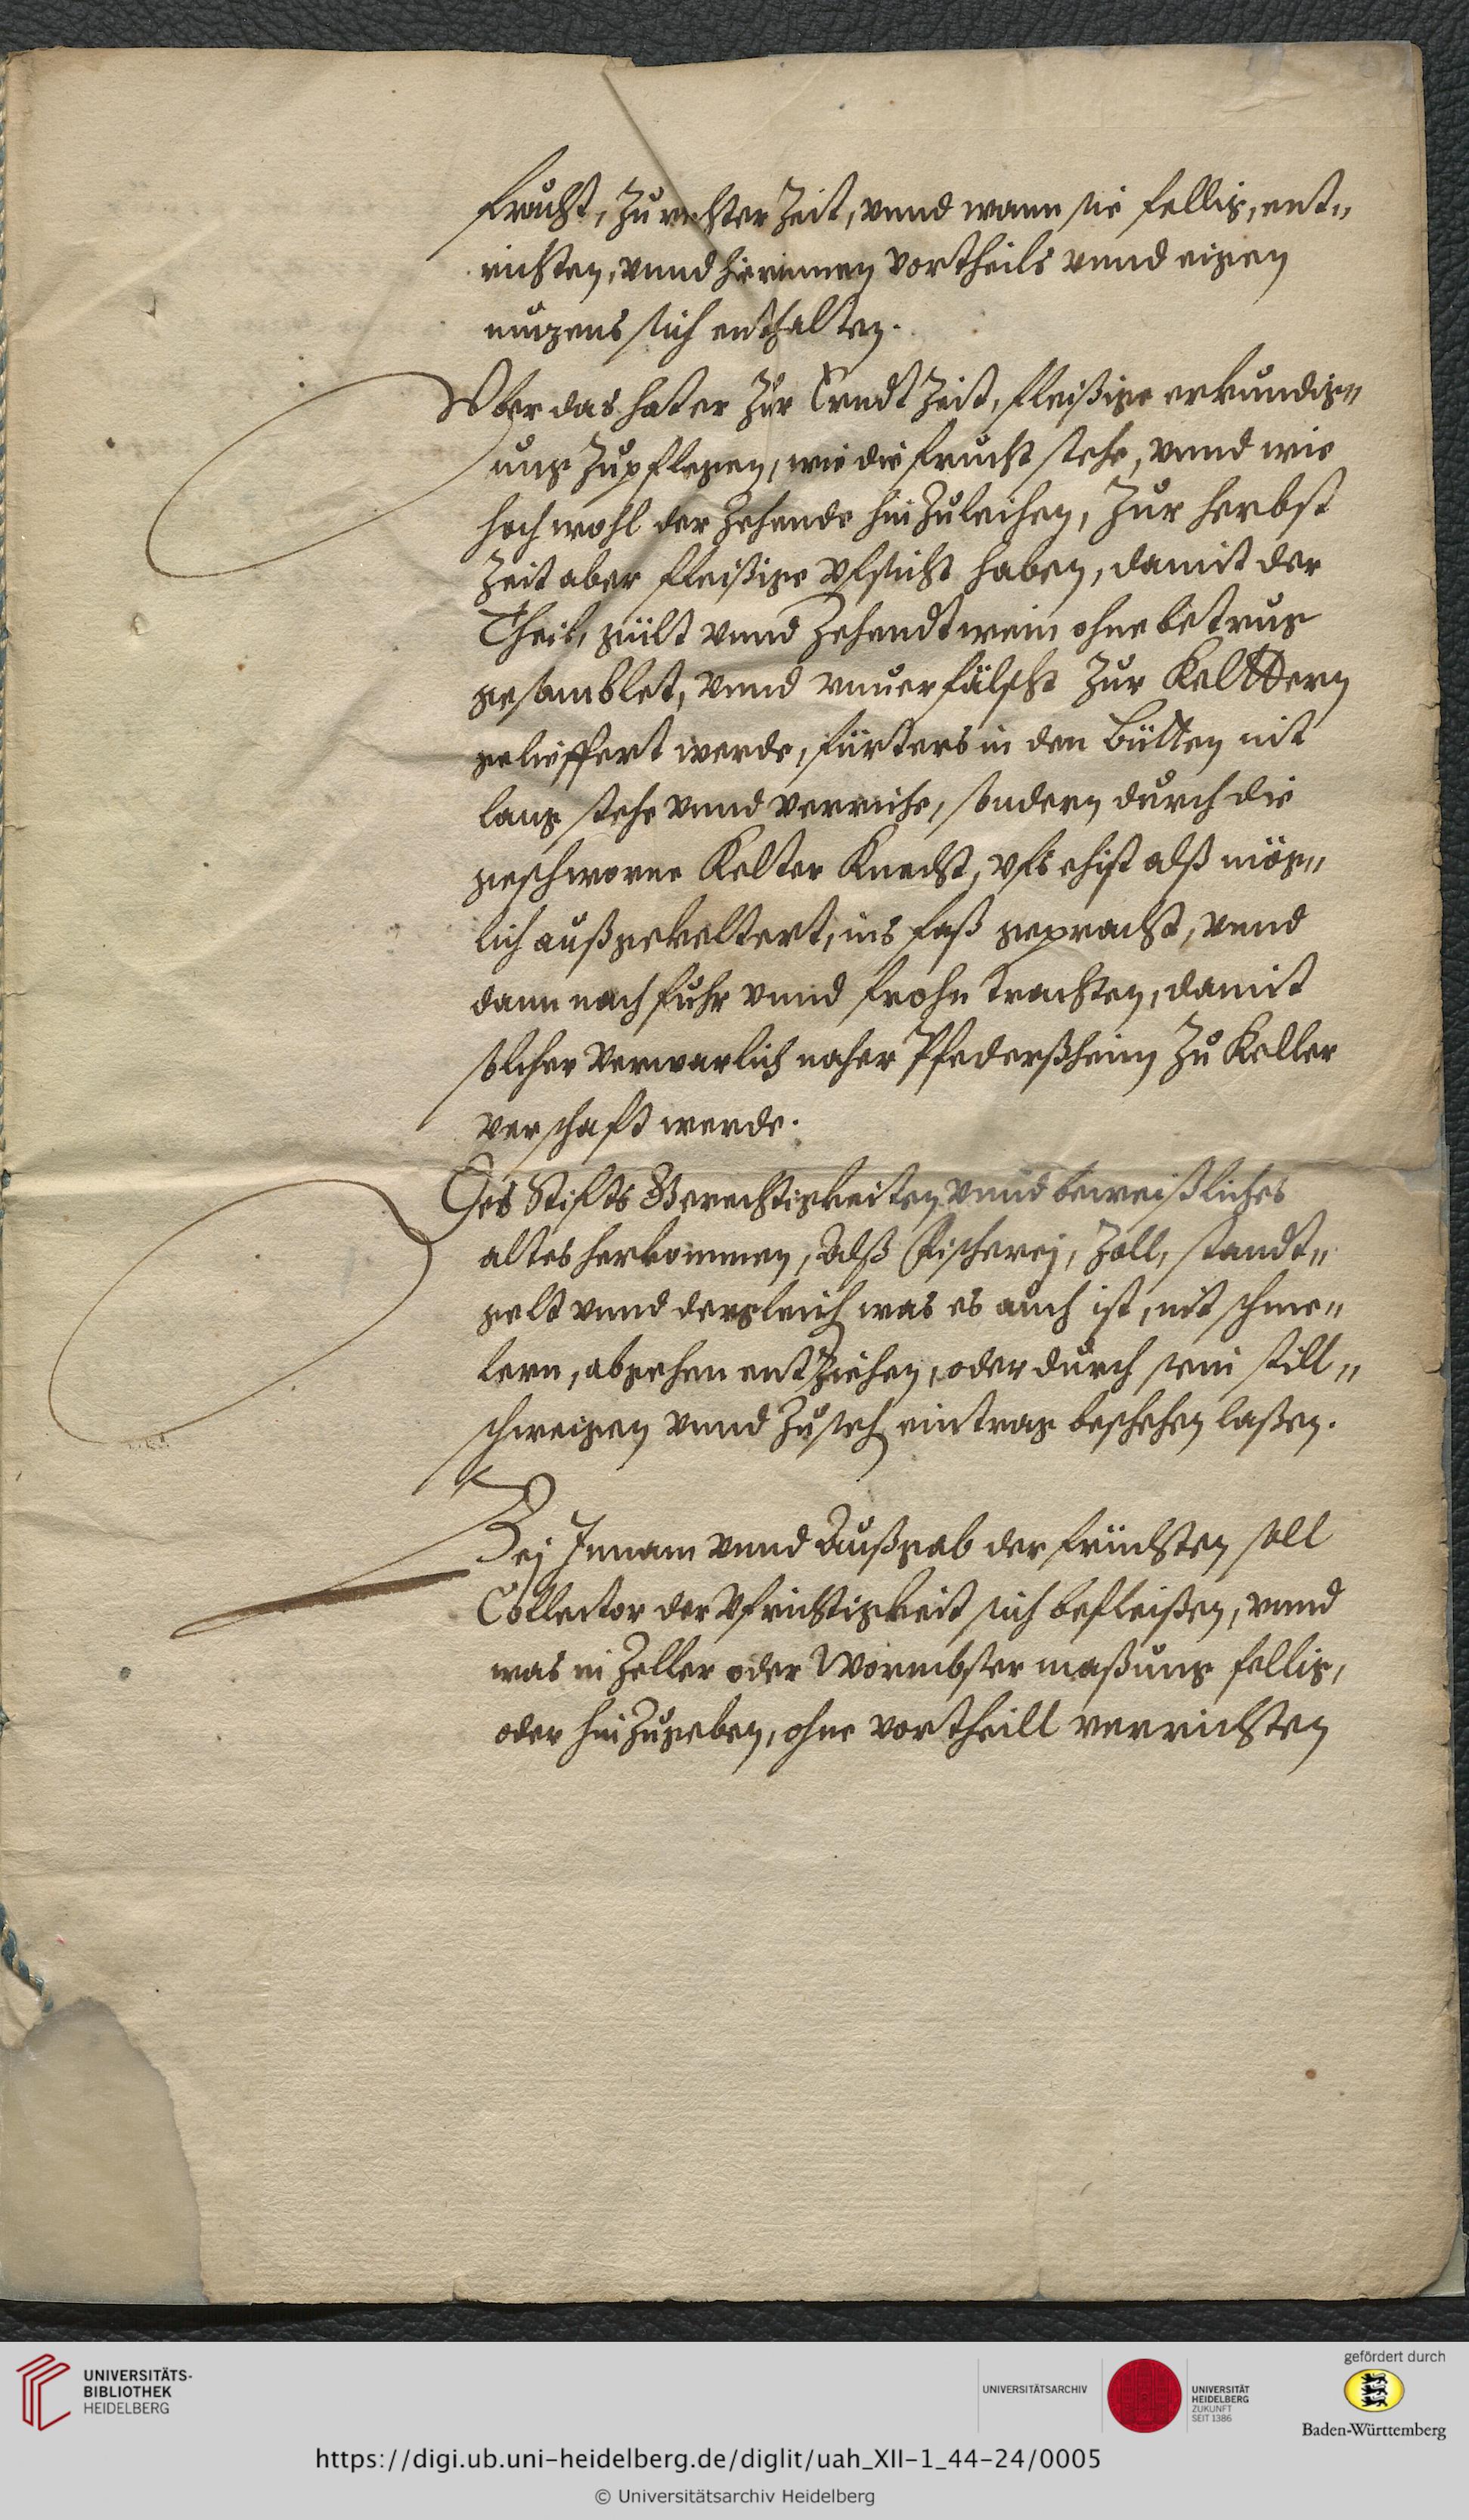 frucht, zu rechter Zeit, vnnd wann sie fellig, ent„
richten, vnnd hierinnen vortheils vnnd eigen
nutzens sich enthalten.
Vber das hat er zur Erndt Zeit, fleißige erkundig„
ung zupflegen, wie die frucht stehe, vnnd wie
hoch wohl der Zehende hinzuleihen, Zur herbst
Zeit aber fleißige vfsicht haben, damit der
Theil, gült vnnd Zehendtwein ohne betrug
gesamblet, vnnd vnuerfälscht zur Kelttern
gelieffert werde, fürters in den bütten nit
lang stehe vnnd verriche, sondern durch die
geschworne Kelter Knecht, vfs ehist alß mög„
lich außgekeltert, ins faß gepracht, vnnd
dann nach fuhr vnnd frohn trachten, damit
solcher verwarlich naher Pfederßheim zu Keller
verschafft werde.
Des Stiffts Gerechtigkeiten vnnd beweißliches
altes herkommen, Alß Fischerej, Zoll, standt„
gelt vnnd dergleich was es auch ist, nit schme„
lern, abgehen entziehen, oder durch sein still„
schweigen vnnd zuseh eintrag beschehen laßen.
Bej Innam vnnd Außgab der früchten soll
Collector der Vfrichtigkeit sich befleißen, vnnd
was in Zeller oder Wormbser maßung fellig,
oder hinzugeben, ohne vortheill verrichten
UNIVERSITÄTS-
BIBLIOTHEK
HEIDELBERG
UNIVERSITÄTSARCHIV
UNIVERSITÄT
HEIDELBERG
ZUKUNFT
SEIT 1386
gefördert durch
Baden-Württemberg
https://digi.ub.uni-heidelberg.de/diglit/uah_XII-1_44-24/0005
© Universitätsarchiv Heidelberg